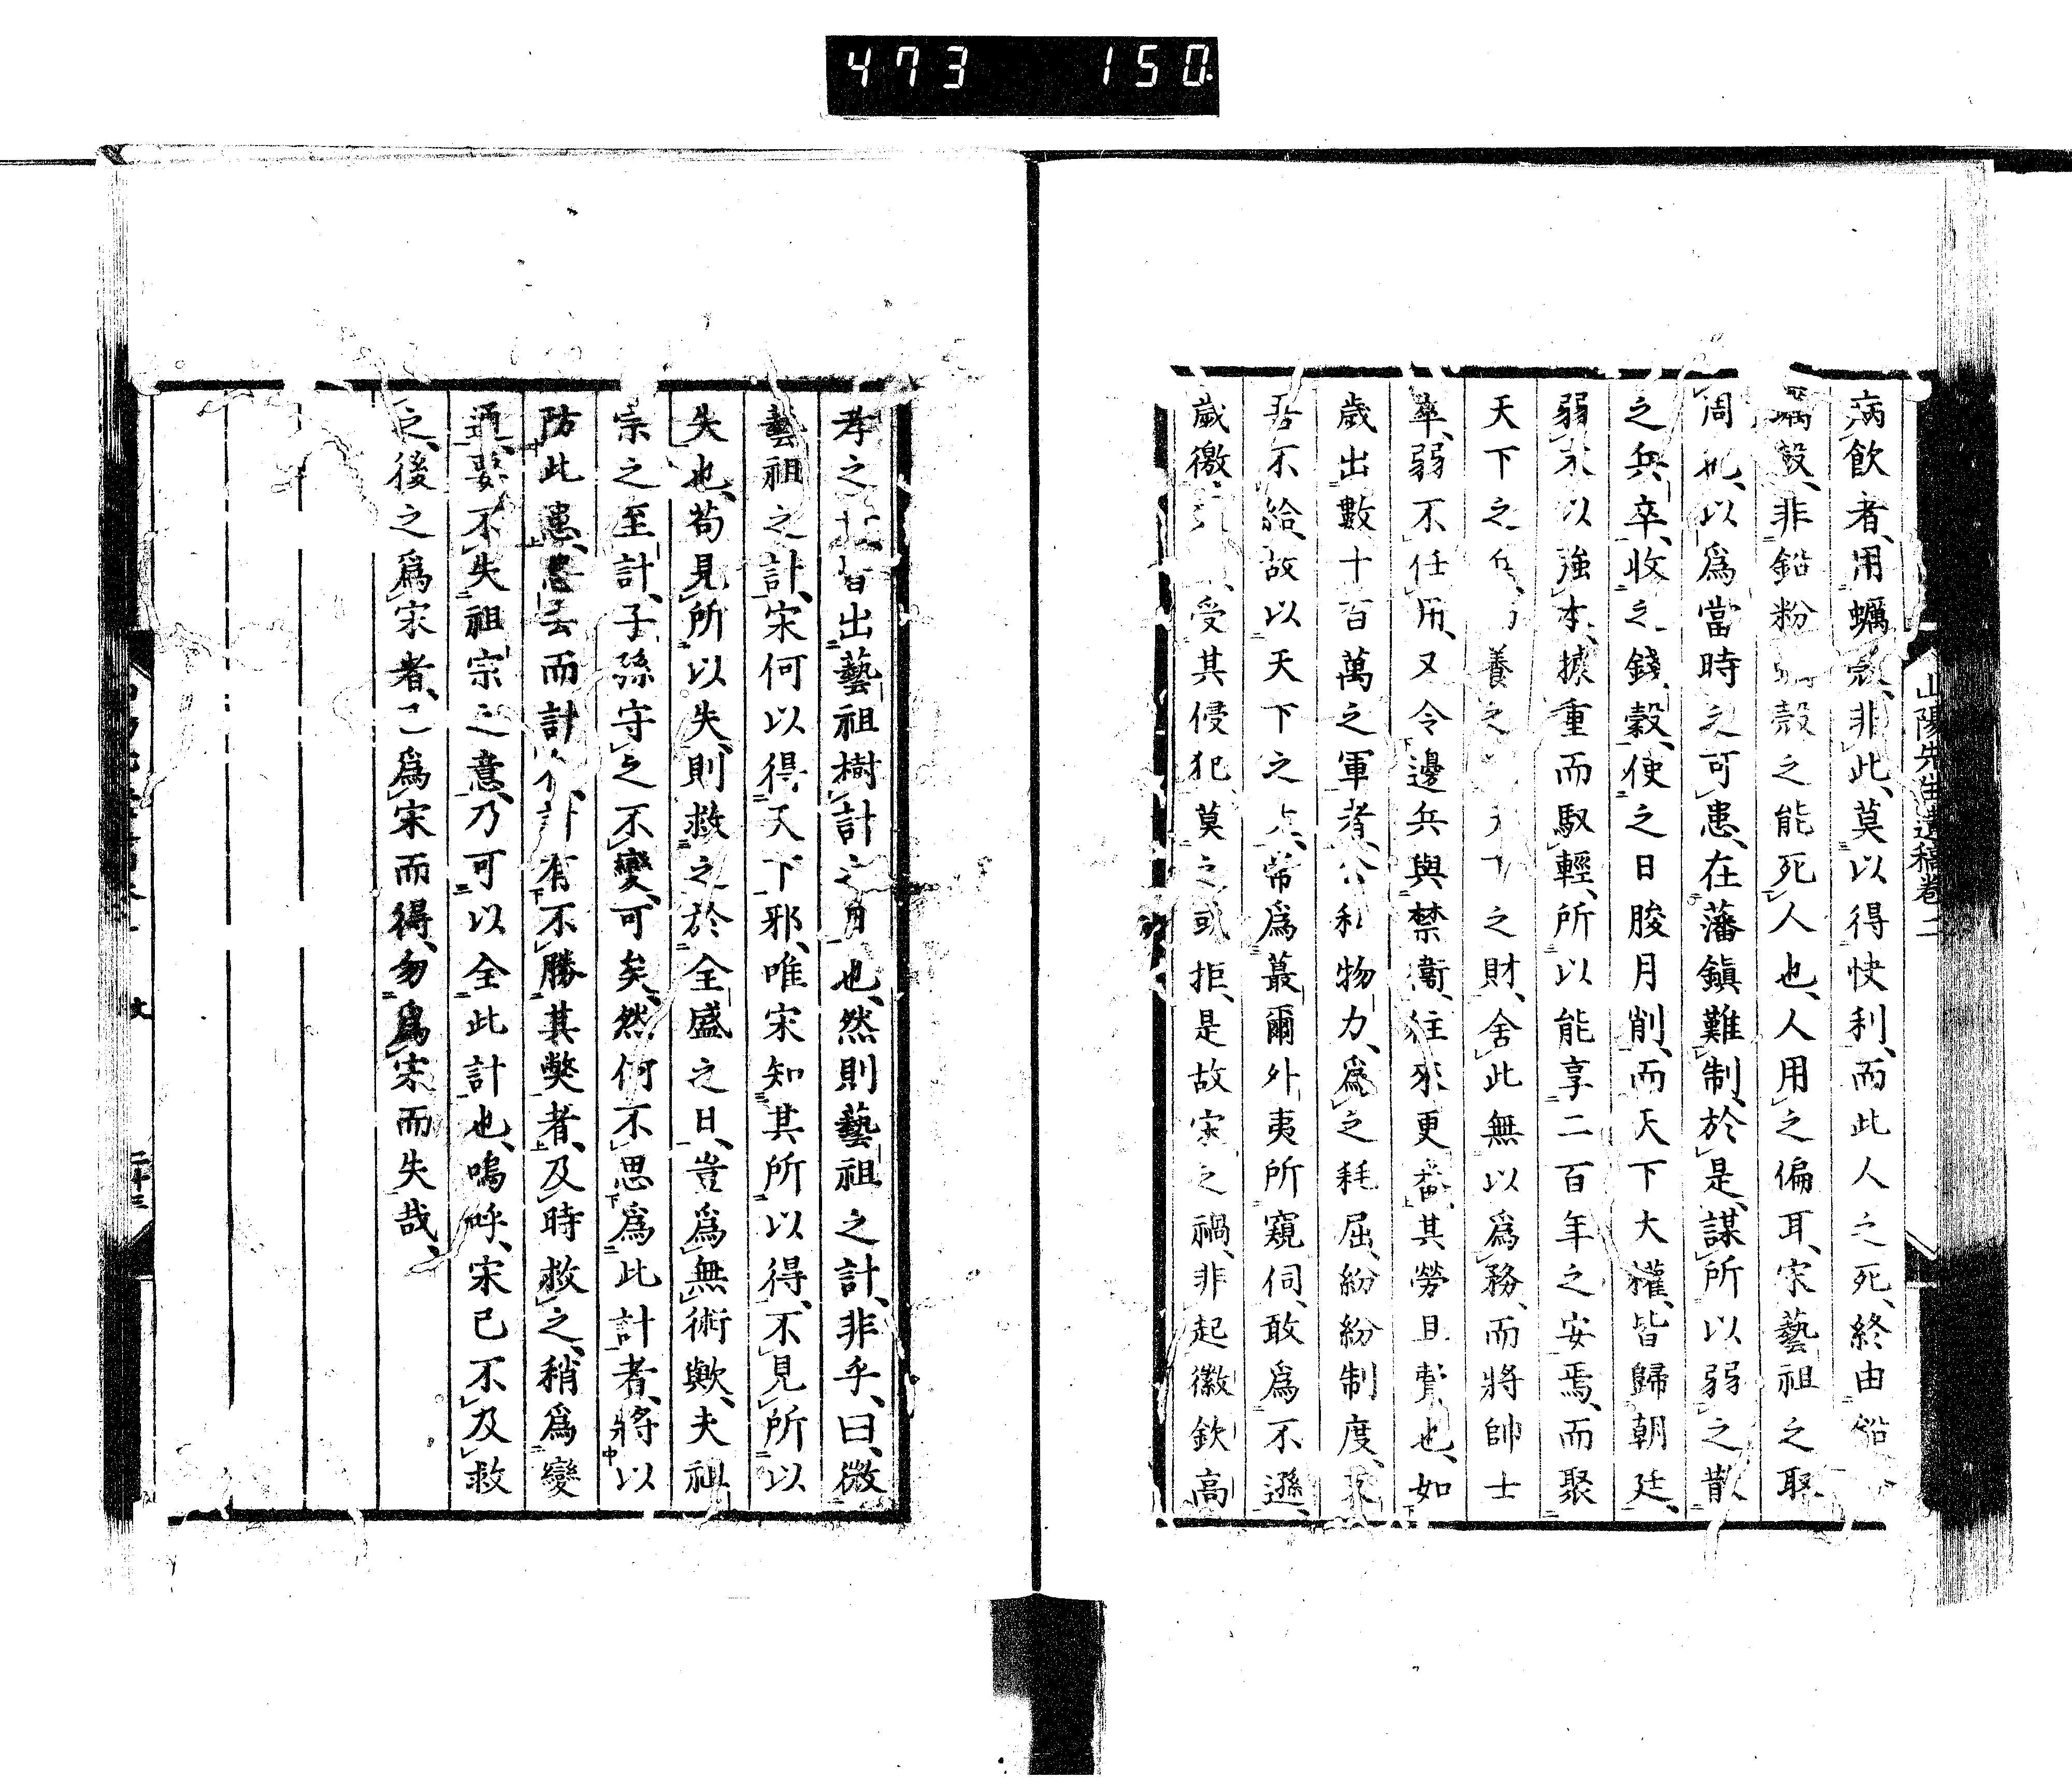 473 150
山陽先生遺稿卷二
病飲者、用蠣殼、非此、莫以得快利、而此人之死、終由鉛
蠣殼、非鉛粉蠣殼之能死人也、人用之偏耳、宋藝祖之取
周也、以爲當時之可患、在藩鎭難制、於是、謀所以弱之、散
之兵卒、收之錢穀、使之日朘月削、而天下大權、皆歸朝廷、
弱末以強本、據重而馭輕、所以能享二百年之安焉、而聚
天下之 養之 之財、舍此無以爲務、而將帥士
卒、弱不任用、又令邊兵與禁衞、往來更番、其勞且費也、如
歲出數十百萬之軍者、公私物力、爲之耗屈、紛紛制度、
吾不給、故以天下之大、常爲蕞爾外夷所窺伺、敢爲不遜、
歲徼 受其侵犯、莫之或拒、是故宋之禍、非起徽欽高
孝之 皆出藝祖樹計之日也、然則藝祖之計、非乎、曰、微
藝祖之計、宋何以得天下邪、唯宋知其所以得、不見所以
失也、苟見所以失、則救之於全盛之日、豈爲無術歟、夫祖
宗之至計、子孫守之不變、可矣、然何不思爲此計者、將以
防此患、患去而計 有不勝其獘者、及時救之、稍爲變
通、要不失祖宗之意、乃可以全此計也、嗚呼、宋已不及救
之、後之爲宋者、已爲宋而得、勿爲宋而失哉、